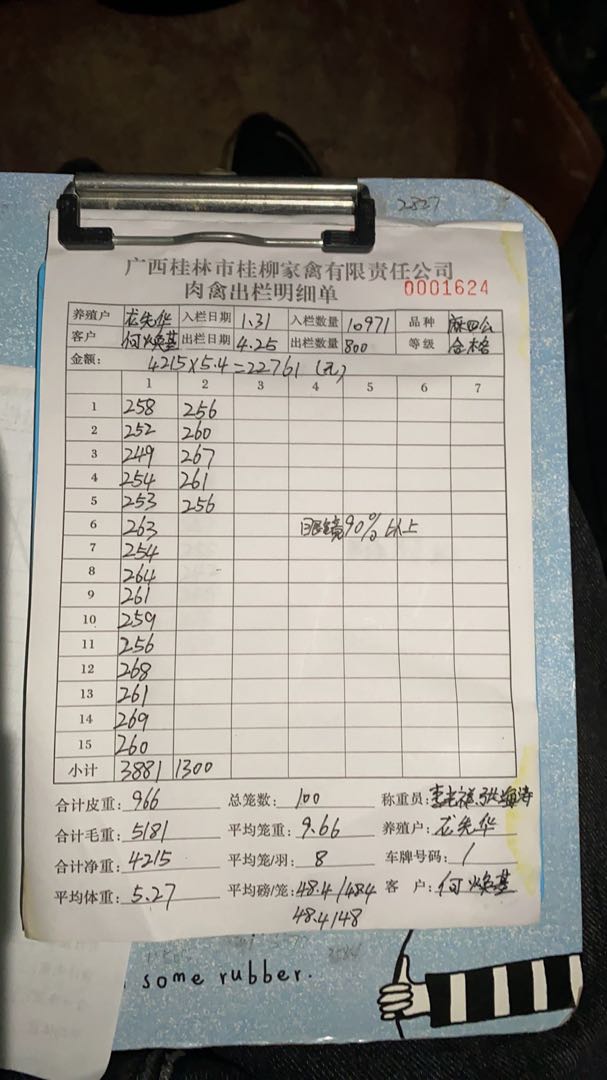 2327
广西桂林市桂柳家禽有限责任公司
肉禽出栏明细单 0001624
养殖户 龙先华 入栏日期 1.31 入栏数量 10971 品种 麻四公
客户 何焕基 出栏日期 4.25 出栏数量 800 等级 合格
金额: 4215×5.4=22761(元)
1 2 3 4 5 6 7
1 258 256
2 252 260
3 249 267
4 254 261
5 253 256
6 263 眼镜90%以上
7 254
8 264
9 261
10 259
11 256
12 268
13 261
14 269
15 260
小计 3881 1300
合计皮重: 966 总笼数: 100 称重员: 张海涛
合计毛重: 5181 平均笼重: 9.66 养殖户: 龙先华
合计净重: 4215 平均笼/羽: 8 车牌号码: /
平均体重: 5.27 平均磅/笼: 48.4/48.4 客户: 何焕基
48.4/48
some rubber.